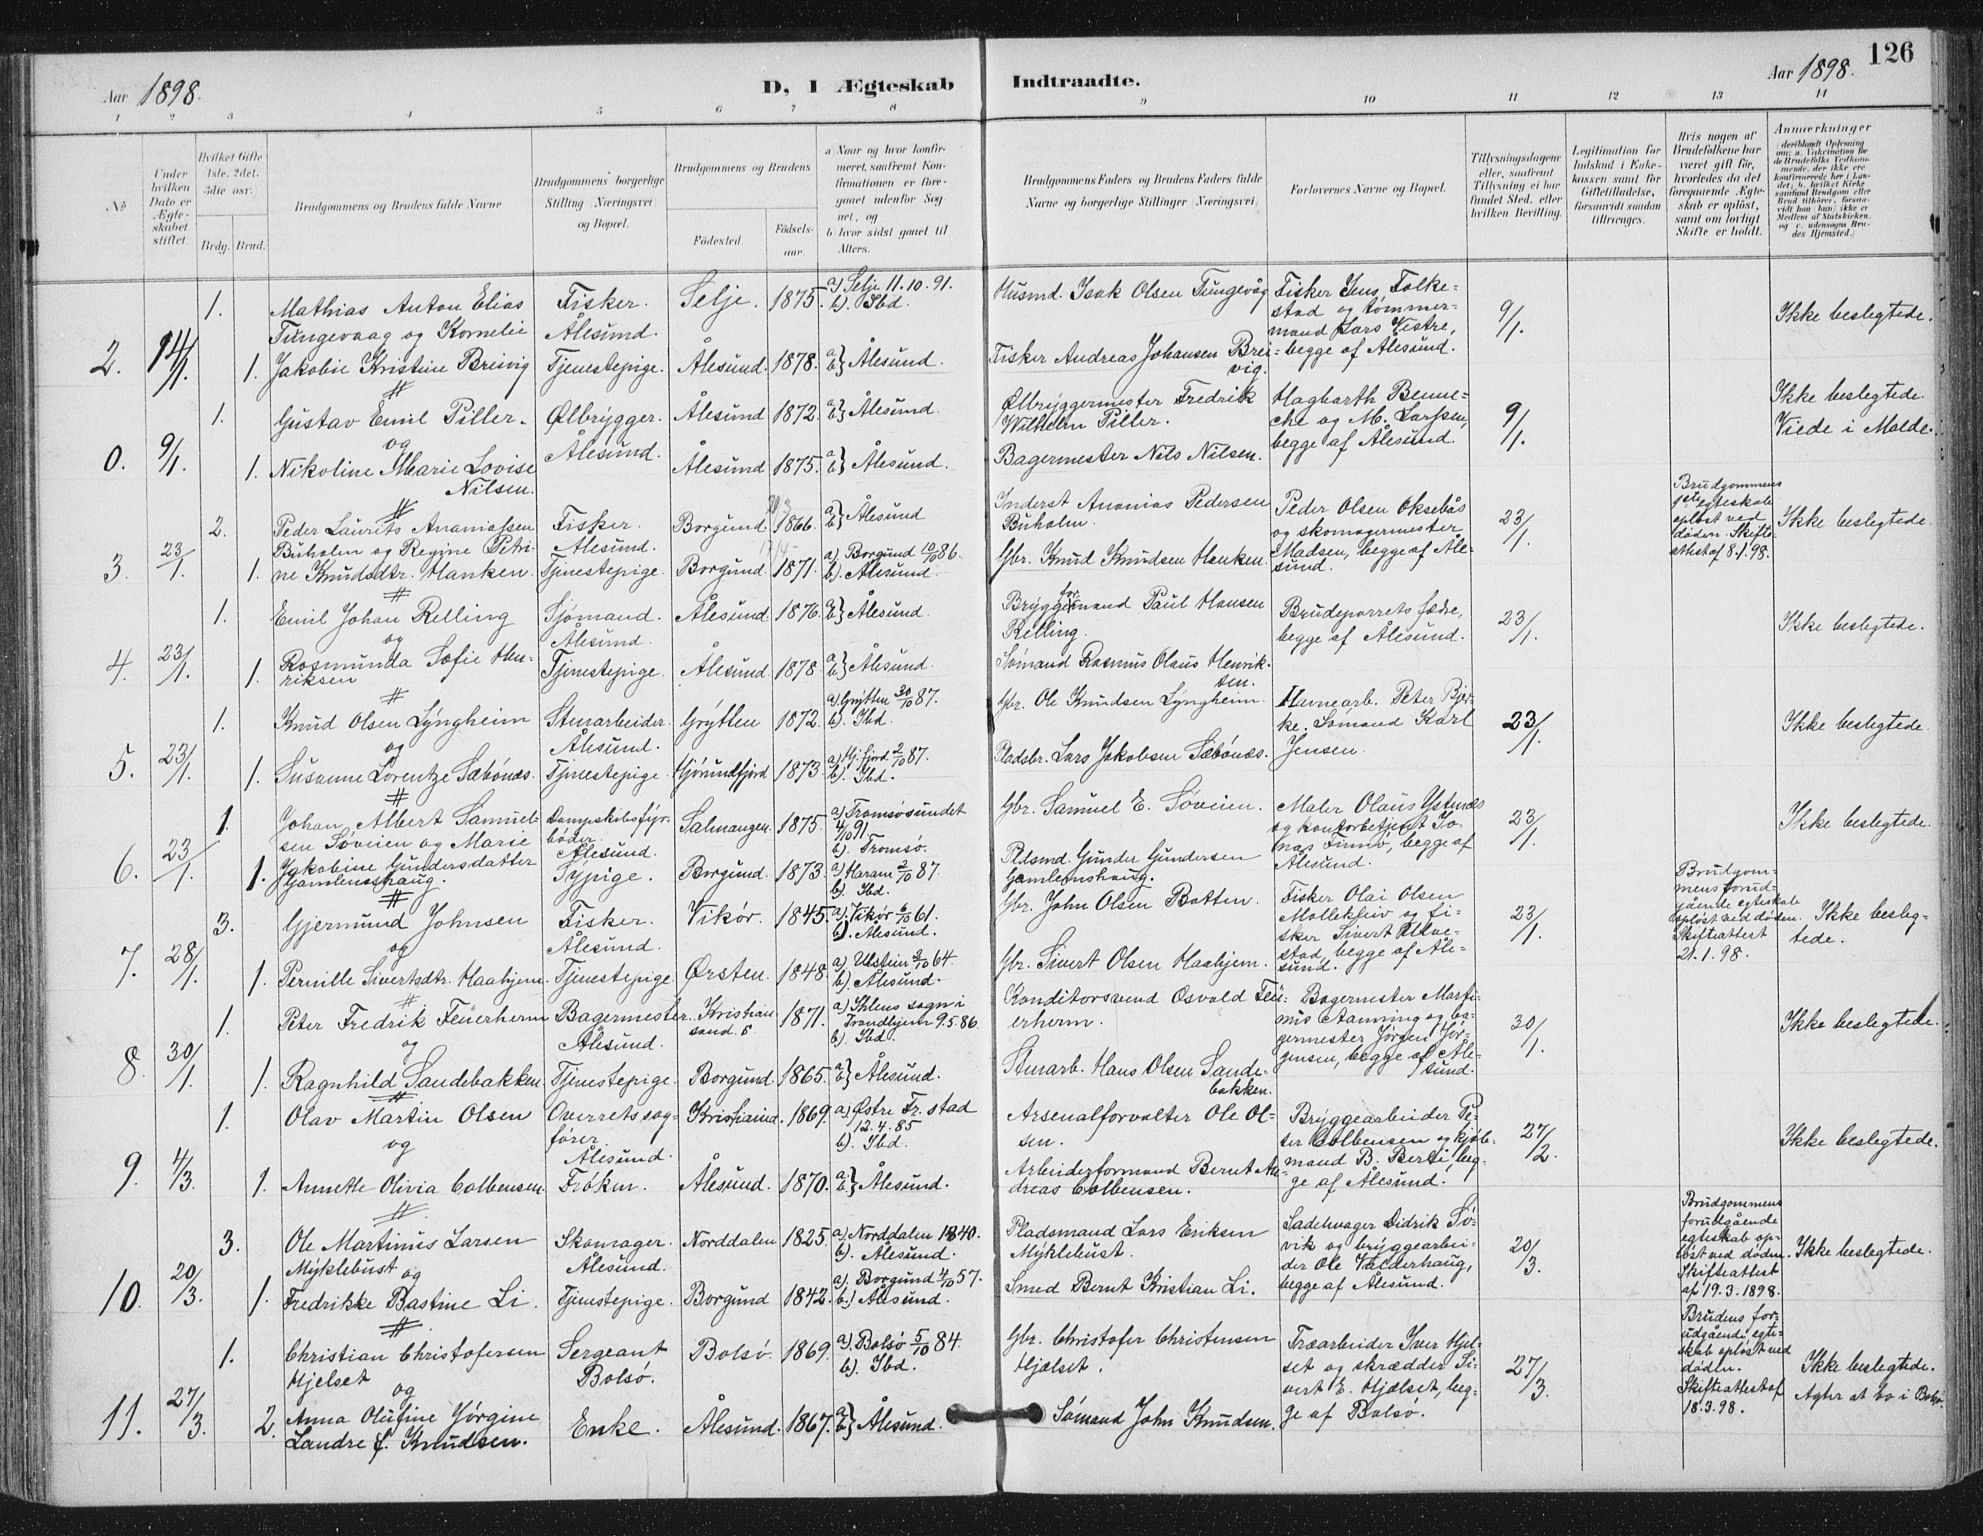 Aar 1898.
D, I Ægteskab
Indtraadte.
Aar 1898.
126
1 2 3 4 5 6 7 8 9 10 11 12 13 14
No
Under hvilken Dato er Ægteskabet stiftet.
Hvilket Gifte 1ste, 2det, 3die osv.
Brdg. Brud.
Brudgommens og Brudens fulde Navne
Brudgommens borgerlige Stilling (Næringsvei) og Bopæl.
Brudgommens og Brudens
Fødested.
Fødselsaar
a Naar og hvor konfirmeret, saafremt Konfirmationen er foregaaet udenfor Sognet, og
b hvor sidst gaaet til Alters.
Brudgommens Faders og Brudens Faders fulde Navne og borgerlige Stillinger (Næringsvei).
Forlovernes Navne og Bopæl.
Tillysningsdagene eller, saafremt Tillysning ei har fundet Sted, efter hvilken Bevilling.
Legitimation for Indskud i Enkekassen samt for Giftetilladelse, forsaavidt saadan tiltrænges.
Hvis nogen af Brudefolkene har været gift før, hvorledes da det foregaaende Ægteskab er opløst, samt om lovligt Skifte er holdt.
Anmærkninger
2. 14/1.
1. Mathias Anton Elias Fisker. Selje. 1875. a) Selje 11.10.91.
Tungevaag og Kornelie Ålesund. b). Ibd.
1. Jakobie Kristine Breivig Tjenestepige. Ålesund. 1878. a b} Ålesund.
Husmd. Isak Olsen Tungevåg
Fisker Andreas Johansen Breivig.
Fisker Jens Folkestad og tømmermand Lars Vestre, begge af Ålesund.
9/1.
Ikke beslegtede.
0. 9/1.
1. Gustav Emil Piller. Ølbrygger. Ålesund 1872. a b} Ålesund.
og Ålesund.
1. Nikoline Marie Lovise Nilsen. Ålesund 1875. a b} Ålesund.
Ølbryggermester Fredrik Wilhelm Piller.
Bagermester Nils Nilsen.
Hagbarth Benneche og M. Larssen, begge af Ålesund.
9/1.
Ikke beslegtede.
Viede i Molde.
3. 23/1.
2. Peder Laurits Ananiassen Fisker. Borgund. 1866. a b} Ålesund
Buholm og Regine Petri- Ålesund.
1. ne Knudsdtr. Hanken. Tjenestepige. Borgund. 1871. a) Borgund 10/10 86.
b). Ålesund.
Inderst Ananias Pedersen Buholm.
Gbr. Knud Knudsen Hanken.
Peder Olsen Oksebås og skomagermester Madsen, begge af Ålesund.
23/1.
Brudgommens 1ste egteskab opløst ved døden. Skifteattest af 8.1.98.
Ikke beslegtede.
4. 23/1.
1. Emil Johan Relling Sjømand. Ålesund 1876. a b} Ålesund
og Ålesund.
1. Rosmunda Sofie Henriksen Tjenestepige. Ålesund. 1878. a b} Ålesund.
Bryggeformand Paul Hansen Relling.
Sømand Rasmus Olaus Henriksen.
Brudeparrets fædre, begge af Ålesund.
23/1.
Ikke beslegtede.
5. 23/1.
1. Knud Olsen Lyngheim Stenarbeider. Grytten 1872. a). Grytten 30/10 87.
og Ålesund. b). Ibd.
1. Susanne Lorentze Sæbønæs. Tjenestepige. Hjørundfjord 1873. a) Hj.fjord 2/10 87.
b). Ibd.
Gbr. Ole Knudsen Lyngheim.
Pladsbr. Lars Jakobsen Sæbønæs.
Havnearb. Peter Bjerke. Sømand Karl Jensen.
23/1.
Ikke beslegtede.
6. 23/1.
1. Johan Albert Samuel- Dampskibsfyr- Salmangen. 1875. a) Tromsøsundet
sen Søveien og Marie bøder 4/10 91.
Ålesund. b). Tromsø.
1. Jakobine Gundersdatter Gamlemshaug. Sypige. Borgund. 1873. a) Haram 2/10 87.
b). Ibd.
Gbr. Samuel E. Søveien.
Pldsmd Gunder Gundersen Gamlemshaug.
Maler Olaus Ystenæs og kontorbetjent Jonas Finnø, begge af Ålesund.
23/1.
Ikke beslegtede.
7. 28/1.
3. Gjermund Johnsen Fisker. Vikør. 1845. a). Vikør 6/10 61.
og Ålesund. b). Ålesund.
1. Pernille Sivertsdtr. Haahjem. Tjenestepige. Ørsten. 1848. a) Ulstein 2/10 64.
b). Ålesund.
Gbr. John Olsen Botten.
Gbr. Sivert Olsen Haahjem.
Fisker Olai Olsen Molleklev og fisker Sivert Ulvestad, begge af Ålesund.
23/1.
Brudgommens forudgående egteskab opløst ved døden. Skifteattest 21.1.98.
Ikke beslegtede.
8. 30/1.
1. Peter Fredrik Feuerherm Bagermester. Kristiansand S 1871. a) Ihlens sogn i
og Ålesund. Trondhjem 9.5.86.
b). Ibd.
1. Ragnhild Sandebakken. Tjenestepige. Borgund. 1865. a b} Ålesund.
Konditorsvend Osvald Feuerherm.
Stenarb. Hans Olsen Sandebakken.
Bagermester Martinus Aanning og bagermester Jørgen Jørgensen, begge af Ålesund.
30/1.
Ikke beslegtede.
9. 4/3.
1. Olav Martin Olsen Overretssag- Kristiania. 1869. a) Østre Fr.stad
og fører. 12.4.85
Ålesund. b). Ibd.
1. Annette Olivia Colbensen. Frøken. Ålesund. 1870. a b} Ålesund.
Arsenalforvalter Ole Olsen.
Arbeiderformand Bernt Andreas Colbensen.
Bryggearbeider Peter Colbensen og kjøbmand B. Berli, begge af Ålesund.
27/2.
Ikke beslegtede.
10. 20/3.
3. Ole Martinus Larsen Skomager. Norddalen 1825. a). Norddalen 1840.
Myklebust og Ålesund. b). Ålesund.
1. Fredrikke Bastine Li. Tjenestepige. Borgund 1842. a). Borgund 4/10 57.
b.) Ålesund.
Pladsmand Lars Eriksen Myklebust.
Smed Bernt Kristian Li.
Sadelmager Didrik Søvik og bryggearbeider Ole Valderhaug, begge af Ålesund.
20/3.
Brudgommens forudgående egteskab opløst ved døden. Skifteattest af 19.3.1898.
Ikke beslegtede.
11. 27/3.
1. Christian Christofersen Sergeant Bolsø. 1869. a). Bolsø 5/10 84.
Hjelset Bolsø. b). Ibd.
og
2. Anna Olufine Jørgine Enke. Ålesund. 1867. a b} Ålesund.
Landre f. Knudsen.
Gbr. Christofer Christensen Hjelset.
Sømand John Knudsen.
Træarbeider Iver Hjelset og skrædder Sivert E. Hjælset, begge af Bolsø.
27/3.
Brudens forudgående egteskab opløst ved døden. Skifteattest af 18.3.98.
Ikke beslegtede.
Agter at bo i Bolsø.